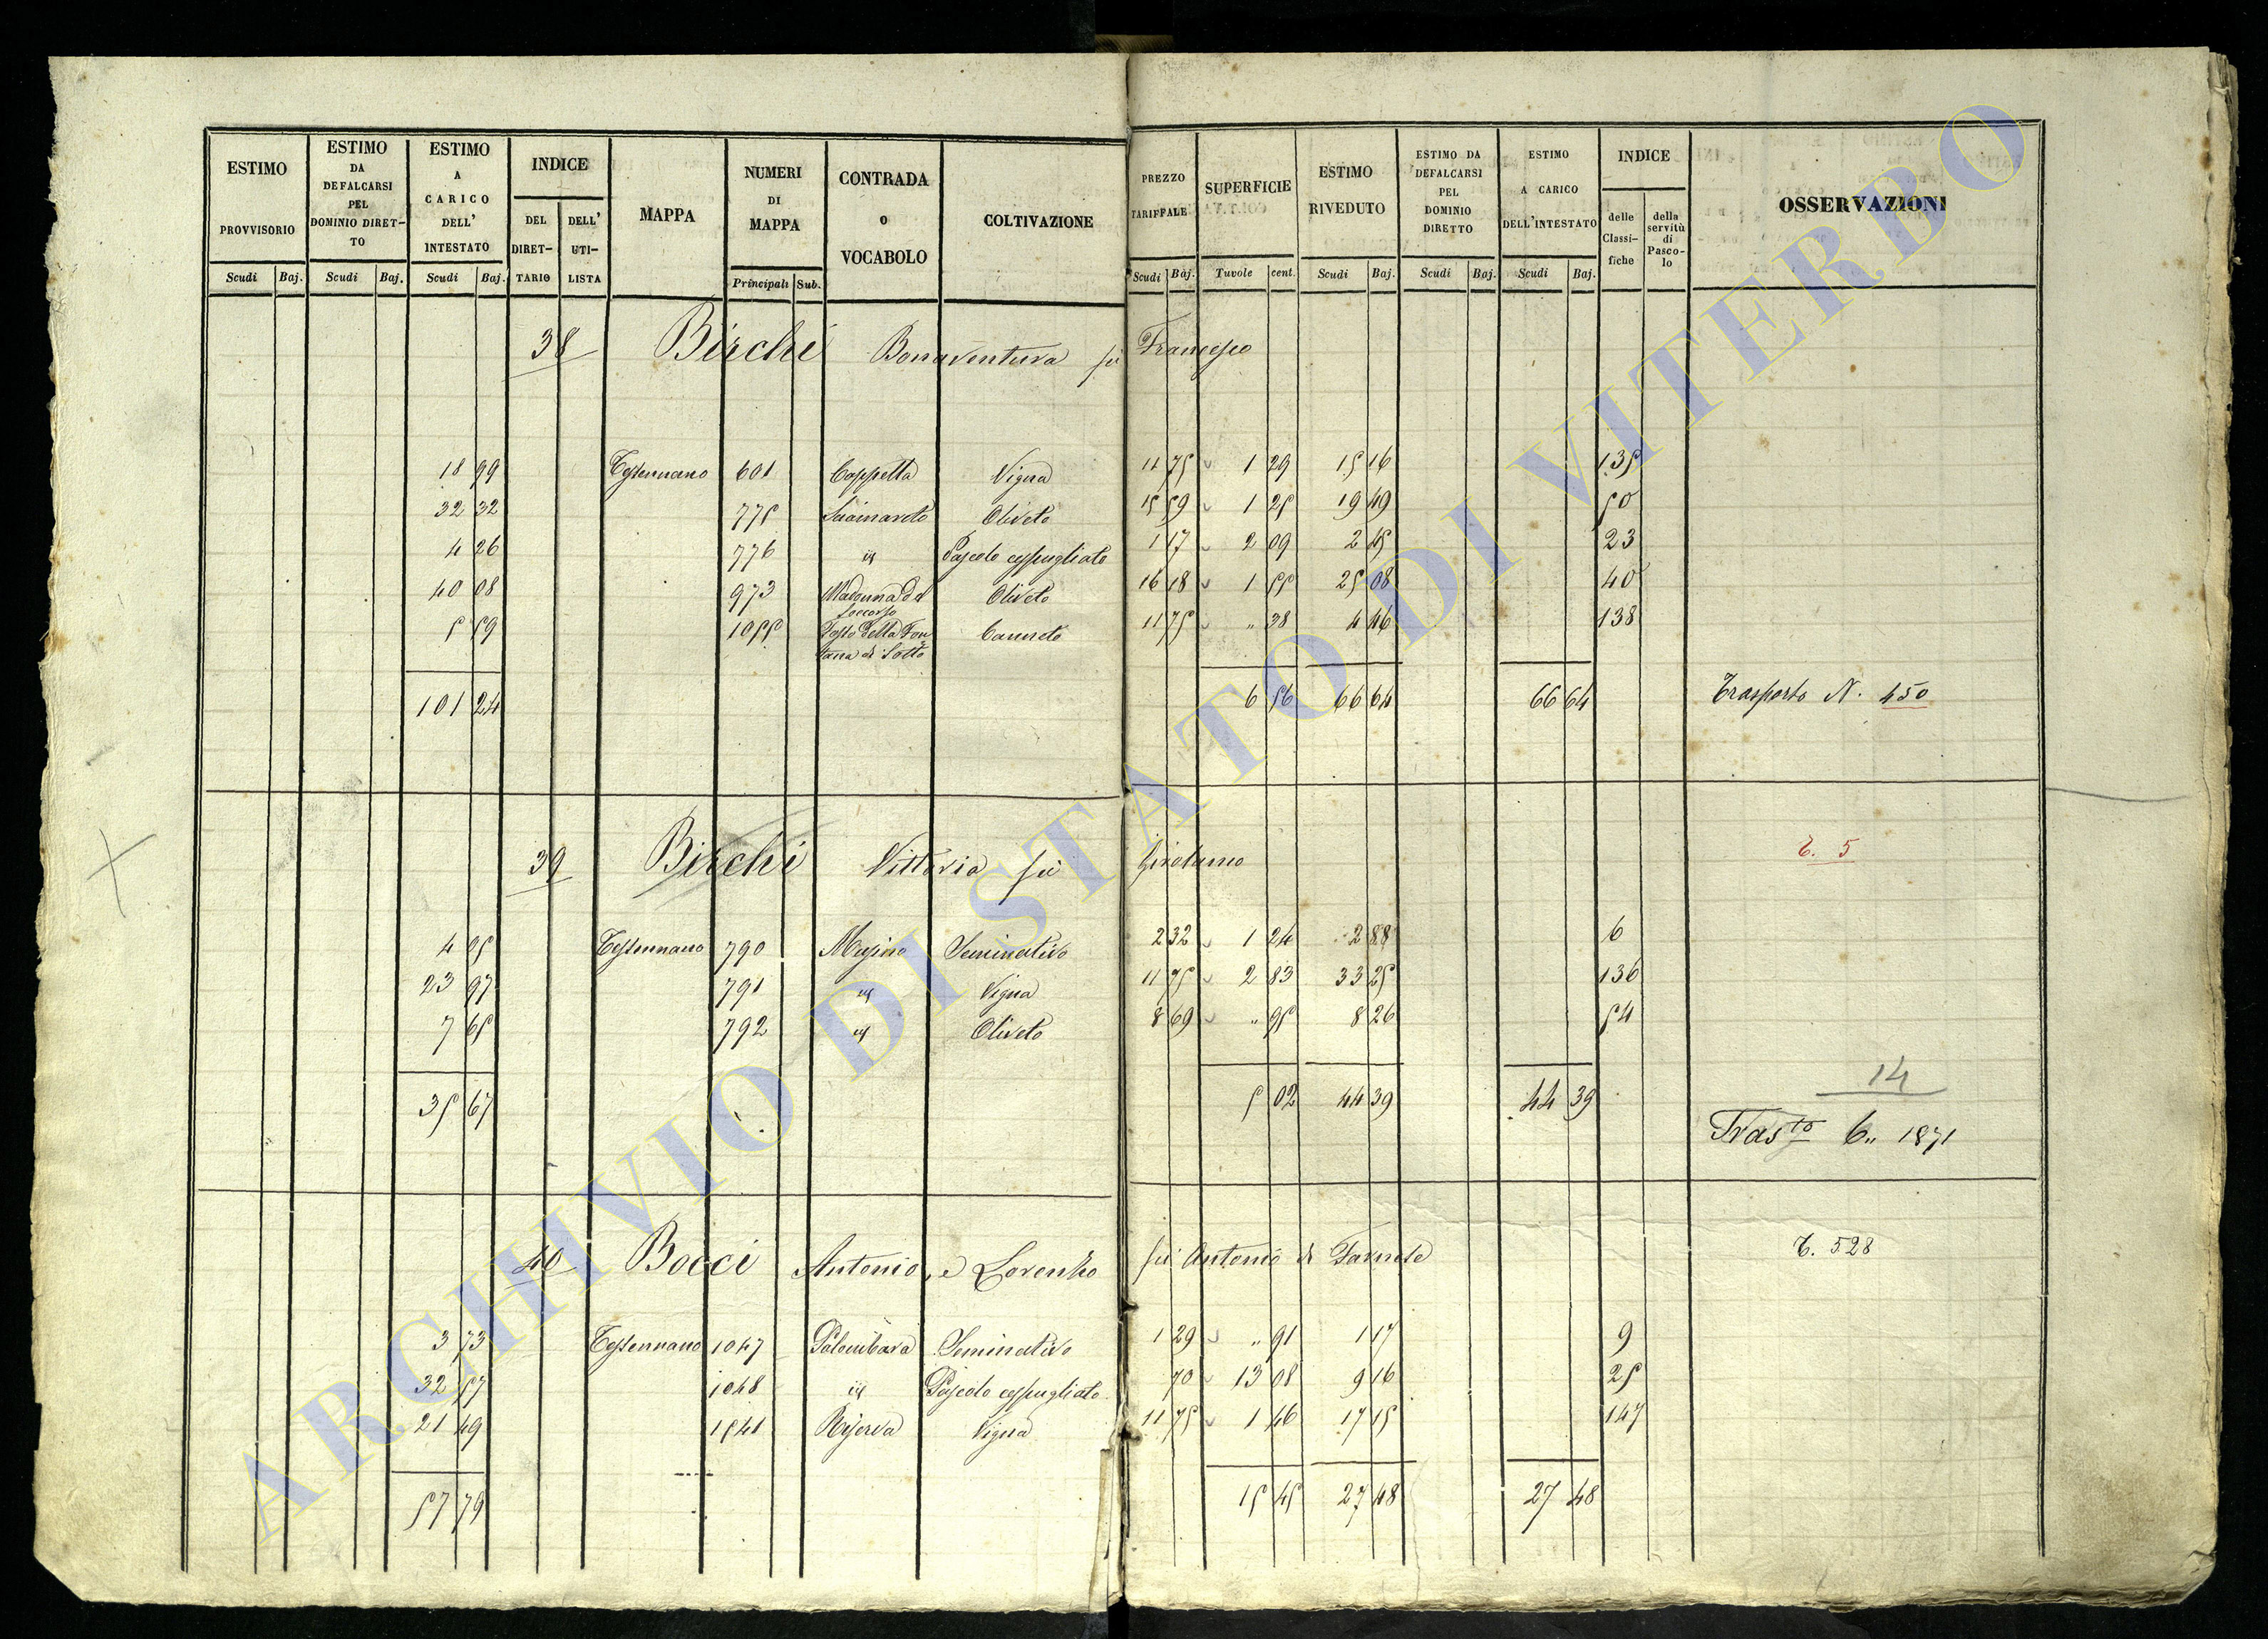 ESTIMO PROVVISORIO Scudi Baj.
ESTIMO DA DEFALCARSI PEL DOMINIO DIRETTO Scudi Baj.
ESTIMO A CARICO DELL' INTESTATO Scudi Baj.
INDICE DEL DIRETTARIO DELL' UTILISTA
MAPPA
NUMERI DI MAPPA Principali Sub.
CONTRADA o VOCABOLO
COLTIVAZIONE
PREZZO TARIFFALE Scudi Baj.
SUPERFICIE Tavole cent.
ESTIMO RIVEDUTO Scudi Baj.
ESTIMO DA DEFALCARSI PEL DOMINIO DIRETTO Scudi Baj.
ESTIMO A CARICO DELL'INTESTATO Scudi Baj.
INDICE delle Classifiche della servitù di Pascolo
OSSERVAZIONI
38 Birchi Bonaventura fù Francesco
18 99 Tessennano 601 Cappella Vigna 11 75 1 29 15 16 135
32 32 775 Oliveto 15 59 1 25 19 49 50
4 26 776 id Pascolo cespugliato 1 17 2 09 2 45 23
40 08 973 Madonna del Soccorso Oliveto 16 18 1 55 25 08 40
5 59 1055 Fosso della Fontana di Sotto Canneto 11 75 " 38 4 46 138
101 24 6 56 66 64 66 64 Trasporto N. 450
39 Birchi Vittoria fù Girolamo T. 5
4 05 Tessennano 790 Musino Seminativo 2 32 1 24 2 88 6
23 97 791 id Vigna 11 75 2 83 33 25 136
7 65 792 id Oliveto 8 69 " 95 8 26 54
35 67 5 02 44 39 44 39
14
Trasto 6" 1871
40 Bocci Antonio, e Lorenzo fù Antonio di Farnese T. 528
3 73 Tessennano 1047 Palombara Seminativo 1 29 " 91 1 17 9
32 57 1048 id Pascolo cespugliato 70 13 08 9 16 25
21 49 1541 Riserva Vigna 11 75 1 46 17 15 147
57 79 15 45 27 48 27 48
ARCHIVIO DI STATO DI VITERBO